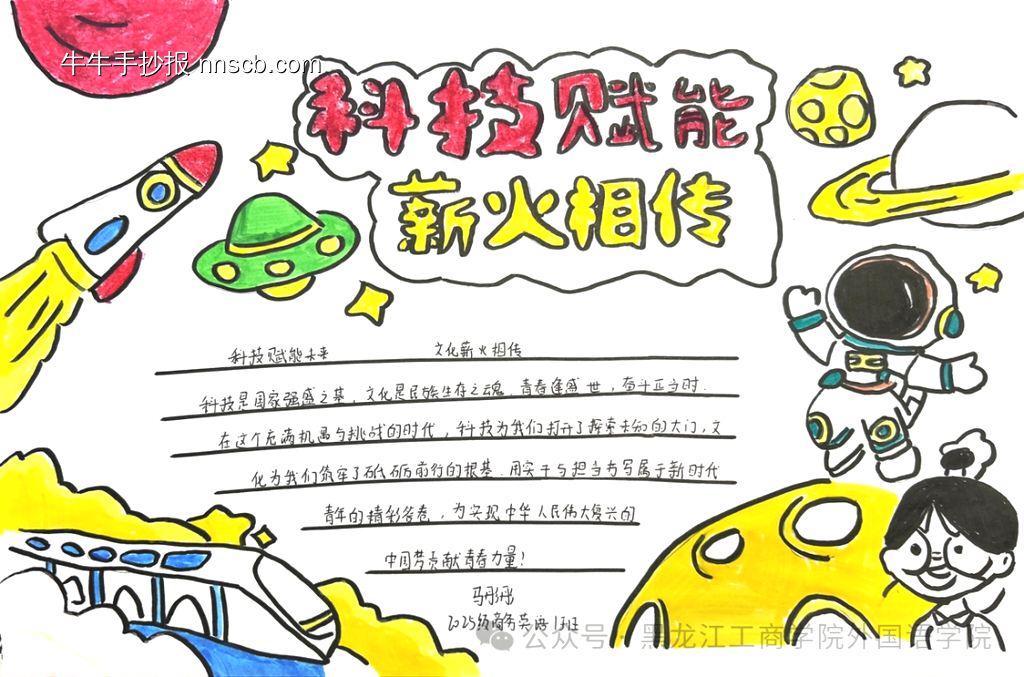 牛牛手抄报 nnscb.com
科技赋能
薪火相传
科技赋能未来 文化薪火相传
科技是国家强盛之基，文化是民族生存之魂。青春逢盛世，奋斗正当时.
在这个充满机遇与挑战的时代，科技为我们打开了探索未知的大门，文
化为我们筑牢了砥砺前行的根基.用实干与担当书写属于新时代
青年的精彩答卷，为实现中华人民伟大复兴的
中国梦贡献青春力量！
马彤彤
2025级商务英语1班
公众号·黑龙江工商学院外国语学院